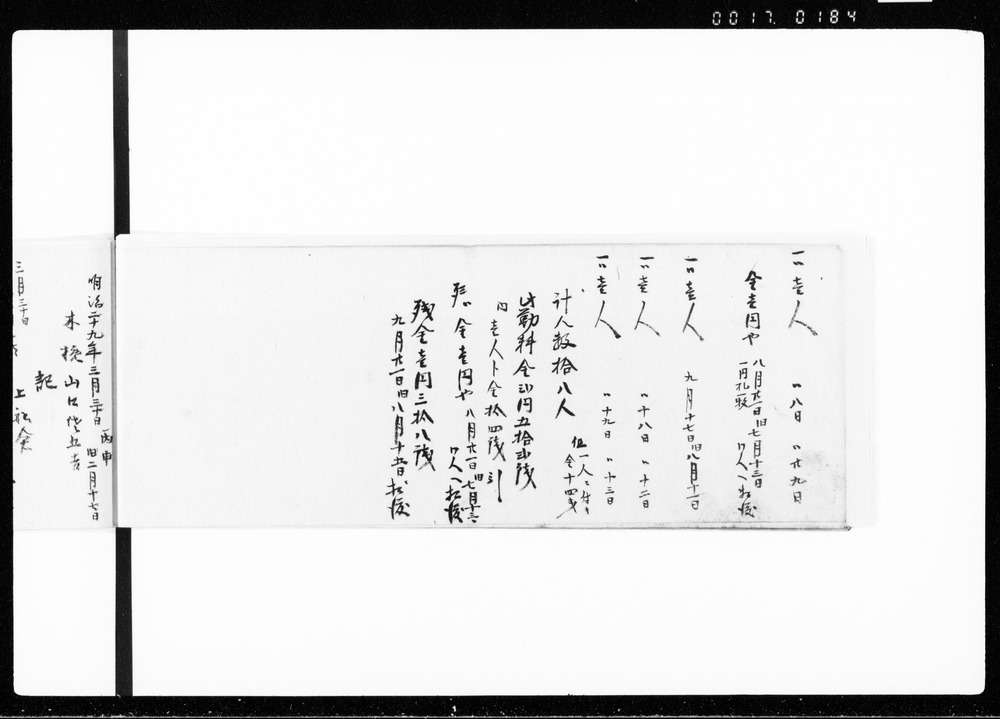 0017. 0184
一〃壱人 〃八日 〃廿九日
金壱円也 八月廿一日旧七月十三日
一円札一枚 口人へ相渡
一〃壱人 九月十七日旧八月十一日
一〃壱人 〃十八日 〃十二日
一〃壱人 〃十九日 〃十三日
計人数拾八人 但一人ニ付キ
金十四銭
此勤料金弐円五拾弐銭
内壱人ト金拾四銭引
金壱円也 八月廿一日旧七月十三
口人へ相渡
残金壱円三拾八銭
九月廿一日旧八月十五日相渡
明治二十九年三月三十日 丙申
旧二月十七日
木挽山口
記
三月三十日